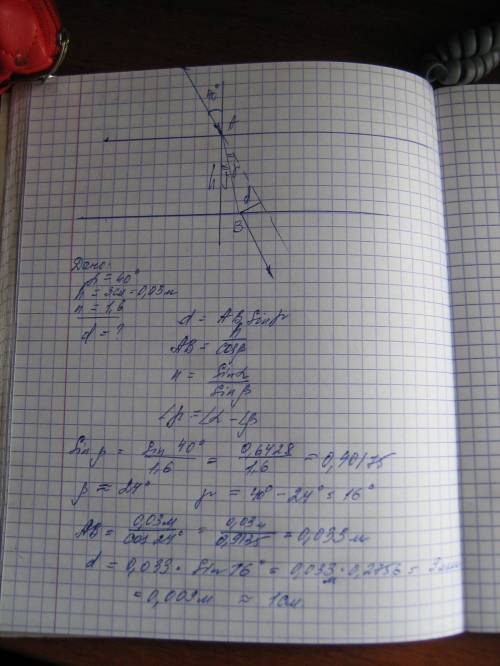 40°
A
d
B
Дано:
α = 40°
h = 3см = 0,03 м
n = 1,6
d = ?
d = AB sin γ
AB = h / cos β
n = sin α / sin β
∠γ = ∠α - ∠β
Sin β = sin 40° / 1,6 = 0,6428 / 1,6 = 0,40175
β ≈ 24° γ = 40° - 24° = 16°
AB = 0,03 м / cos 24° = 0,03 м / 0,9135 = 0,033 м
d = 0,033 · Sin 16° = 0,033 м · 0,2756 =
= 0,009 м ≈ 1 см